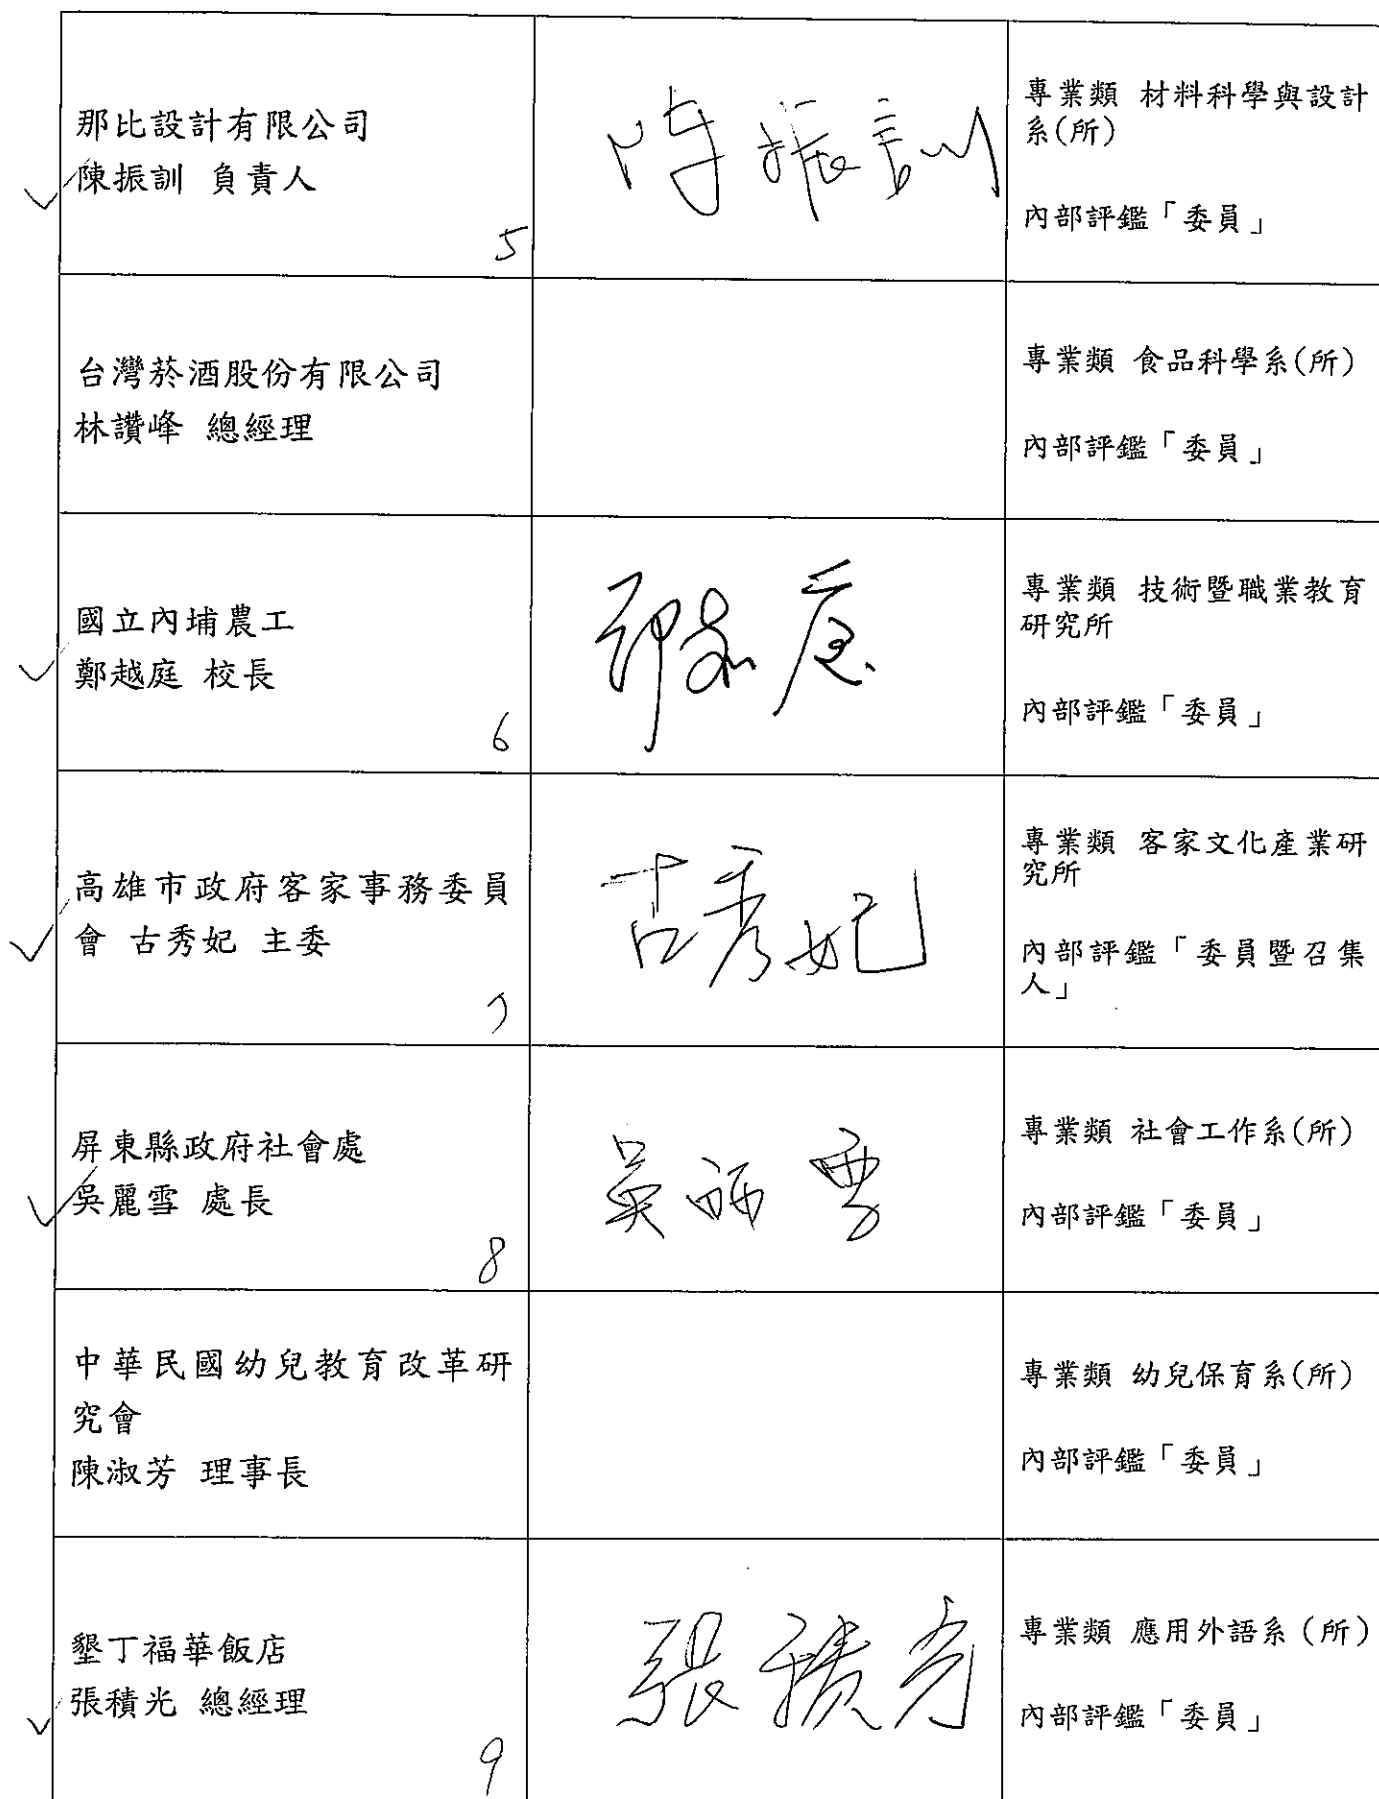 那比設計有限公司
陳振訓 負責人
5
陳振訓
專業類 材料科學與設計
系(所)
內部評鑑「委員」
台灣菸酒股份有限公司
林讚峰 總經理
專業類 食品科學系(所)
內部評鑑「委員」
國立內埔農工
鄭越庭 校長
6
專業類 技術暨職業教育
研究所
內部評鑑「委員」
高雄市政府客家事務委員
會 古秀妃 主委
7
古秀妃
專業類 客家文化產業研
究所
內部評鑑「委員暨召集
人」
屏東縣政府社會處
吳麗雪 處長
8
吳麗雪
專業類 社會工作系(所)
內部評鑑「委員」
中華民國幼兒教育改革研
究會
陳淑芳 理事長
專業類 幼兒保育系(所)
內部評鑑「委員」
墾丁福華飯店
張積光 總經理
9
張積光
專業類 應用外語系（所）
內部評鑑「委員」